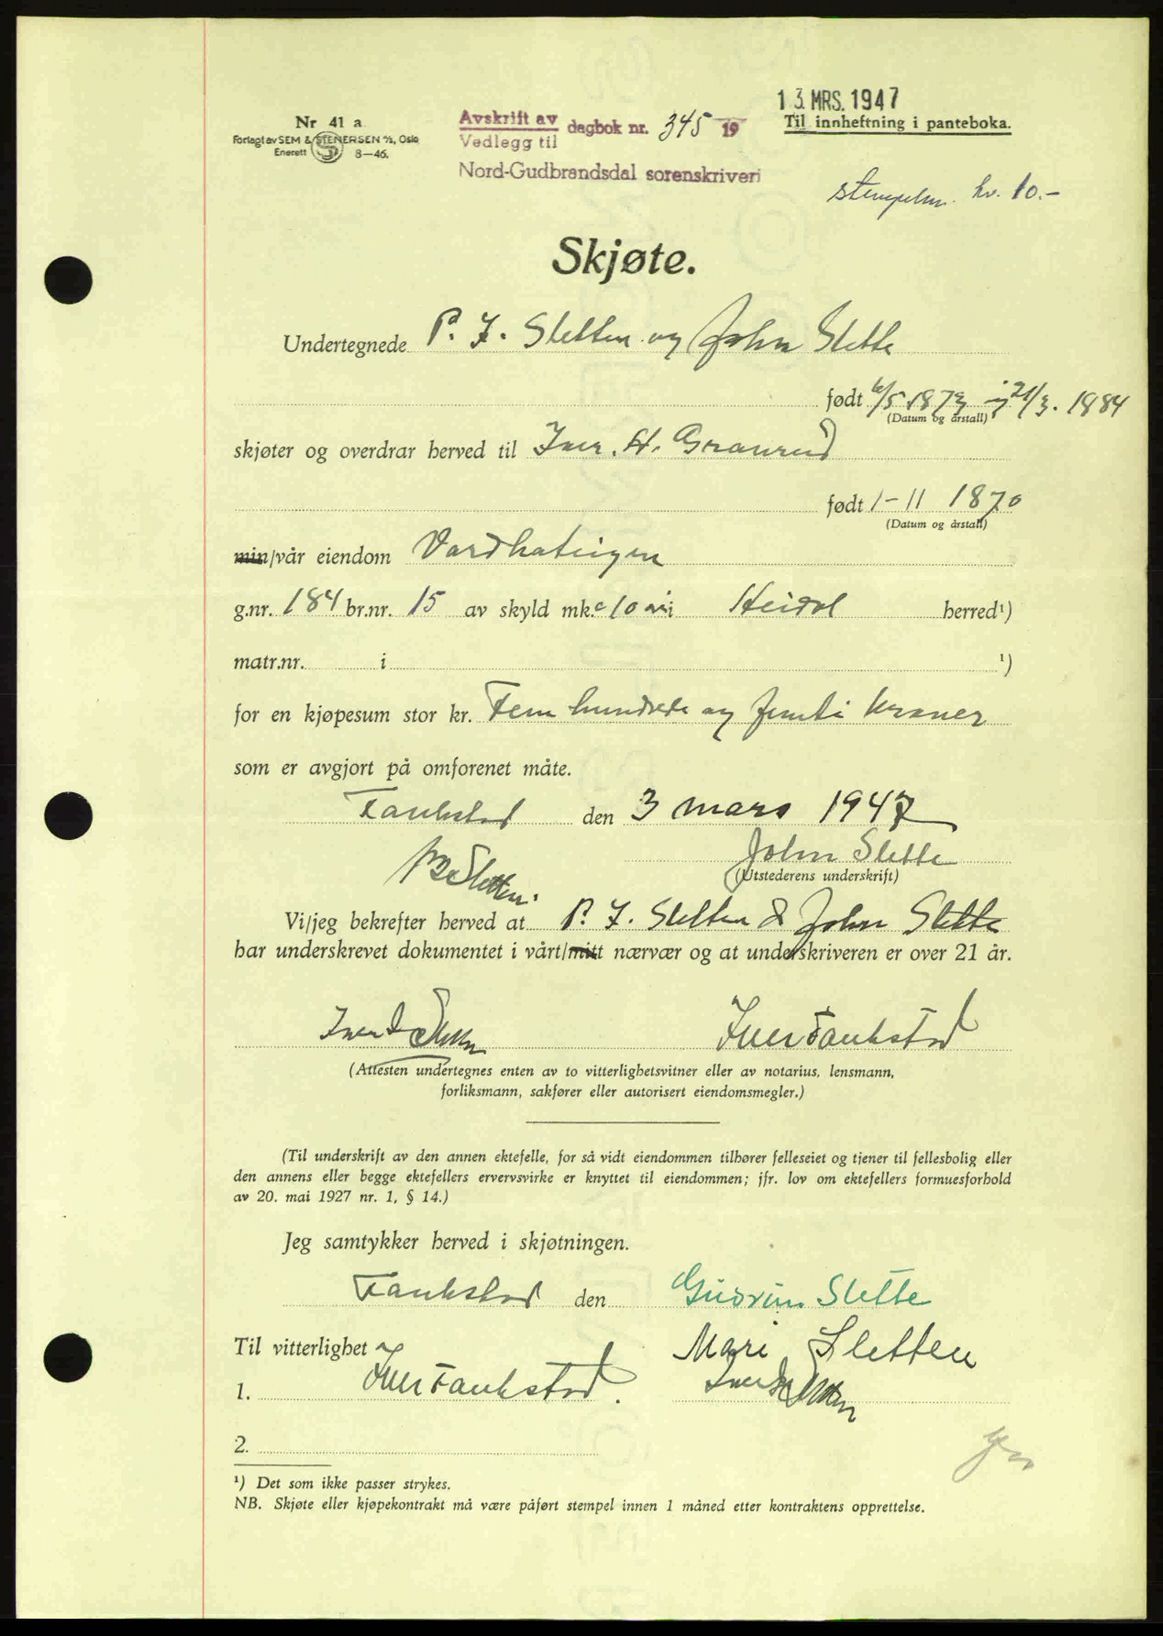 13. MRS. 1947
Nr 41 a
Forlagt av SEM & STENERSEN A/S, Oslo
Enerett 8-46.
Avskrift av
Vedlegg til dagbok nr. 345 19
Nord-Gudbrandsdal sorenskriveri
Til innheftning i panteboka.
stempelm. kr. 10.-
Skjøte.
Undertegnede P. I. Sletten og John Slette
født 6/5 1873 og 21/3. 1884
(Datum og årstall)
skjøter og overdrar herved til Iver. H. Granrud
født 1-11 1870
(Datum og årstall)
min/vår eiendom
g.nr. 184 br.nr. 15 av skyld mk. 10 i Heidal herred¹)
matr.nr. i ¹)
for en kjøpesum stor kr. Fem hundrede og femti kroner
som er avgjort på omforenet måte.
Faukstad den 3 mars 1947
John Slette
Sletten.
(Utstederens underskrift)
Vi/jeg bekrefter herved at P. I. Sletten & John Slette
har underskrevet dokumentet i vårt/mitt nærvær og at underskriveren er over 21 år.
Iver Iver Faukstad
(Attesten undertegnes enten av to vitterlighetsvitner eller av notarius, lensmann,
forliksmann, sakfører eller autorisert eiendomsmegler.)
(Til underskrift av den annen ektefelle, for så vidt eiendommen tilhører felleseiet og tjener til fellesbolig eller
den annens eller begge ektefellers ervervsvirke er knyttet til eiendommen; jfr. lov om ektefellers formuesforhold
av 20. mai 1927 nr. 1, § 14.)
Jeg samtykker herved i skjøtningen.
Faukstad den Gudrun Slette
Til vitterlighet Mari Sletten
1. Iver Faukstad. Iver
2.
¹) Det som ikke passer strykes.
NB. Skjøte eller kjøpekontrakt må være påført stempel innen 1 måned etter kontraktens opprettelse.